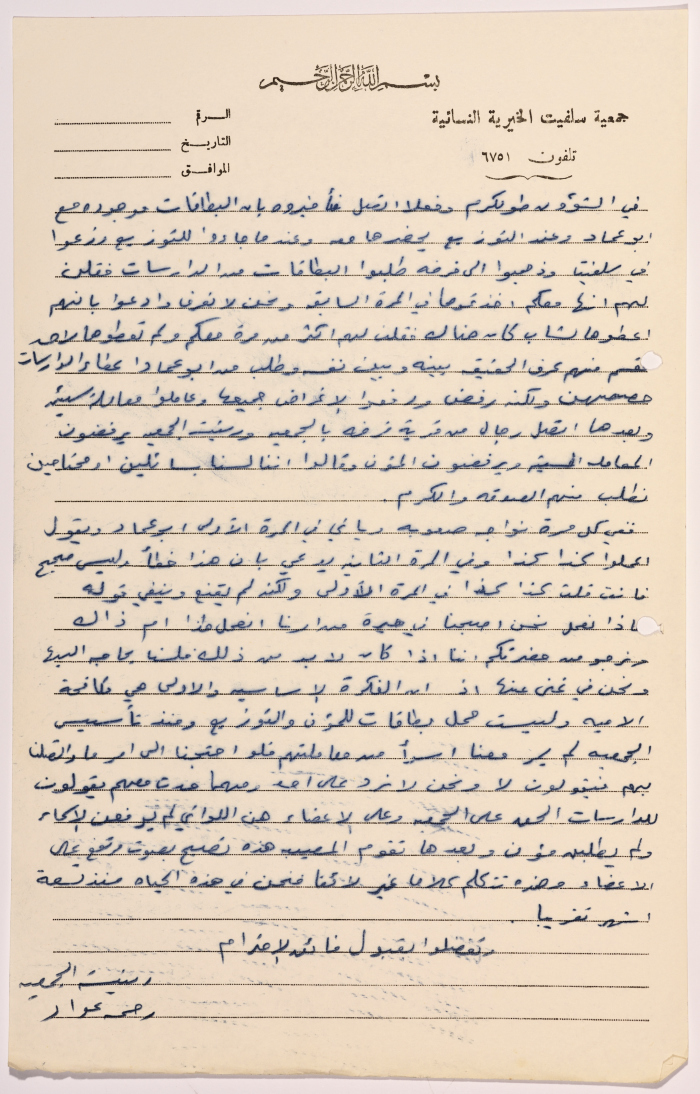 بسم الله الرحمن الرحيم
جمعية سلفيت الخيرية النسائية
تلفون ٦٧٥١
الرقم
التاريخ
الموافق
في الشؤون طولكرم وفعلا اتصل فأخبروه بان البطاقات موجوده مع
ابو عماد وعند التوزيع يحضرها معه وعندما جاءوا للتوزيع وزعوا
في سلفيت وذهبوا الى فرخه طلبوا البطاقات من الدارسات فقلن
لهم انها معكم اخذتموها في المرة السابقه ونحن لا نعرف وادعوا بانهم
اعطوها لشاب كان هناك فقلن لهم اكثر من مرة معكم ولم تعطوها لاحد
فقسم منهم عرف الحقيقه بينه وبين نفسه وطلب من ابو عماد اعطاء الدارسات
حصصهن ولكنه رفض ورفعوا الاغراض جميعها وعاملوا معاملة سيئه
وبعدها اتصل رجال من قرية فرخه بالجمعيه ورئيسة الجمعيه يرفضون
المعامله السيئه ويرفضون المؤن وقالوا اننا لسنا بسائلين او محتاجين
نطلب منهم الصدقه والكرم .
ففي كل مرة نواجه صعوبه وياتي في المرة الأولى ابو عماد ويقول
اعملوا كذا كذا وفي المرة الثانيه يدعي بان هذا خطأ وليس صحيح
فانت قلت كذا كذا في المرة الأولى ولكنه لم يقنع وينفي قوله
ماذا نعمل نحن اصبحنا في حيرة من امرنا انعمل هذا ام ذاك
ونرجو من حضرتكم اننا اذا كان لا بد من ذلك فلسنا بحاجه اليها
ونحن في غنى عنها اذ ان الفكرة الاساسيه والاولى هي مكافحة
الاميه وليست حمل بطاقات للمؤن والتوزيع ومنذ تأسيس
الجمعيه لم ير معنا اسوأ من معاملتهم فلو احتجنا الى امر ما واتصلنا
بهم فيقولون لا ونحن لا نرد على احد ومهما حدث معهم يقولون
للدارسات الحق على الجمعيه وعلى الاعضاء هن اللواتي لم يوقعن الاسماء
ولم يطلبن مؤن وبعدها تقوم المصيبه هذه تصيح بصوت مرتفع على
الاعضاء وهذه تتكلم كلاما غير لائقا فنحن في هذه الحياه منذ تسعة
اشهر تقريبا .
وتفضلوا بقبول فائق الاحترام
رئيسة الجمعيه
عواد